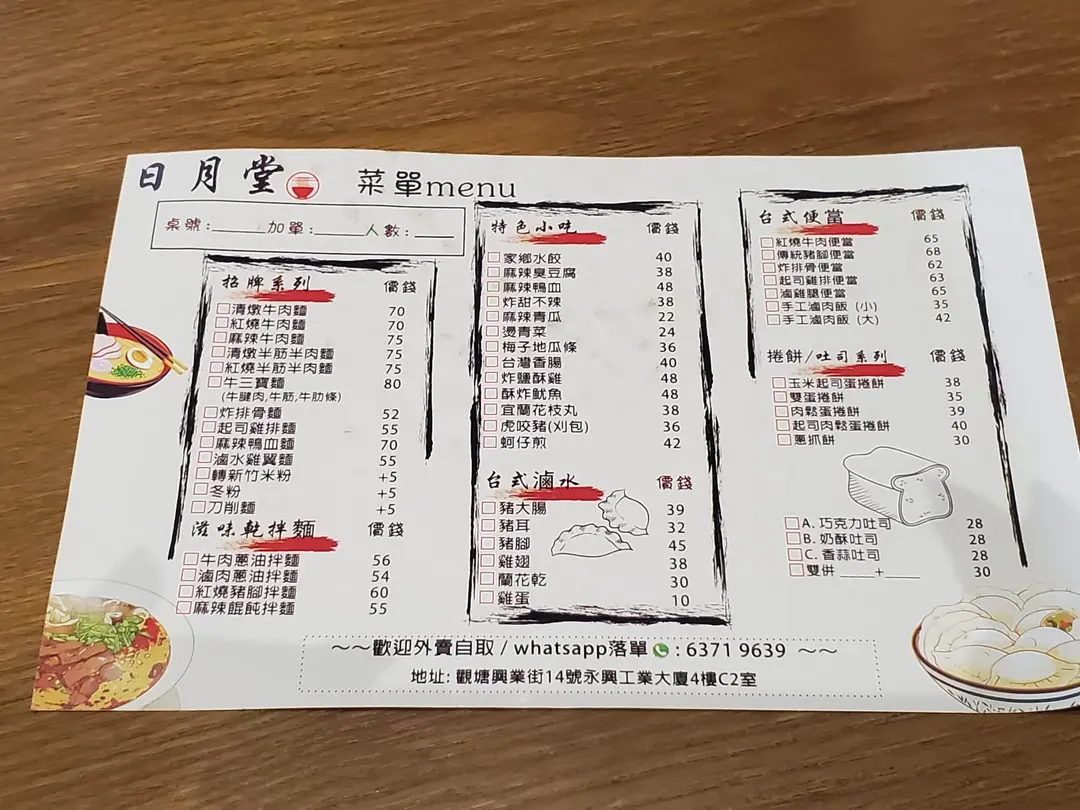 日月堂 菜單menu
桌號:_____加單:_____人數:____
招牌系列 價錢
清燉牛肉麵 70
紅燒牛肉麵 70
麻辣牛肉麵 75
清燉半筋半肉麵 75
紅燒半筋半肉麵 75
牛三寶麵 80
(牛腱肉,牛筋,牛肋條)
炸排骨麵 52
起司雞排麵 55
麻辣鴨血麵 70
滷水雞翼麵 55
轉新竹米粉 +5
冬粉 +5
刀削麵 +5
滋味乾拌麵 價錢
牛肉蔥油拌麵 56
滷肉蔥油拌麵 54
紅燒豬腳拌麵 60
麻辣餛飩拌麵 55
特色小吃 價錢
家鄉水餃 40
麻辣臭豆腐 38
麻辣鴨血 48
炸甜不辣 38
麻辣青瓜 22
燙青菜 24
梅子地瓜條 36
台灣香腸 40
炸鹽酥雞 48
酥炸魷魚 48
宜蘭花枝丸 38
虎咬豬(刈包) 36
蚵仔煎 42
台式滷水 價錢
豬大腸 39
豬耳 32
豬腳 45
雞翅 38
蘭花乾 30
雞蛋 10
台式便當 價錢
紅燒牛肉便當 65
傳統豬腳便當 68
炸排骨便當 62
起司雞排便當 63
滷雞腿便當 65
手工滷肉飯 (小) 35
手工滷肉飯 (大) 42
捲餅/吐司系列 價錢
玉米起司蛋捲餅 38
雙蛋捲餅 35
肉鬆蛋捲餅 39
起司肉鬆蛋捲餅 40
蔥抓餅 30
A. 巧克力吐司 28
B. 奶酥吐司 28
C. 香蒜吐司 28
雙併 ____+____ 30
~~歡迎外賣自取 / whatsapp落單 : 6371 9639 ~~
地址: 觀塘興業街14號永興工業大廈4樓C2室